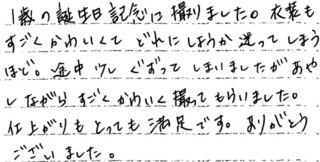 1歳の誕生日記念に撮りました。衣装も
すごくかわいくて どれにしようか迷ってしまう
ほど。途中少しぐずってしまいましたがあや
しながらすごくかわいく撮ってもらいました。
仕上がりもとっても満足です。ありがとう
ございました。